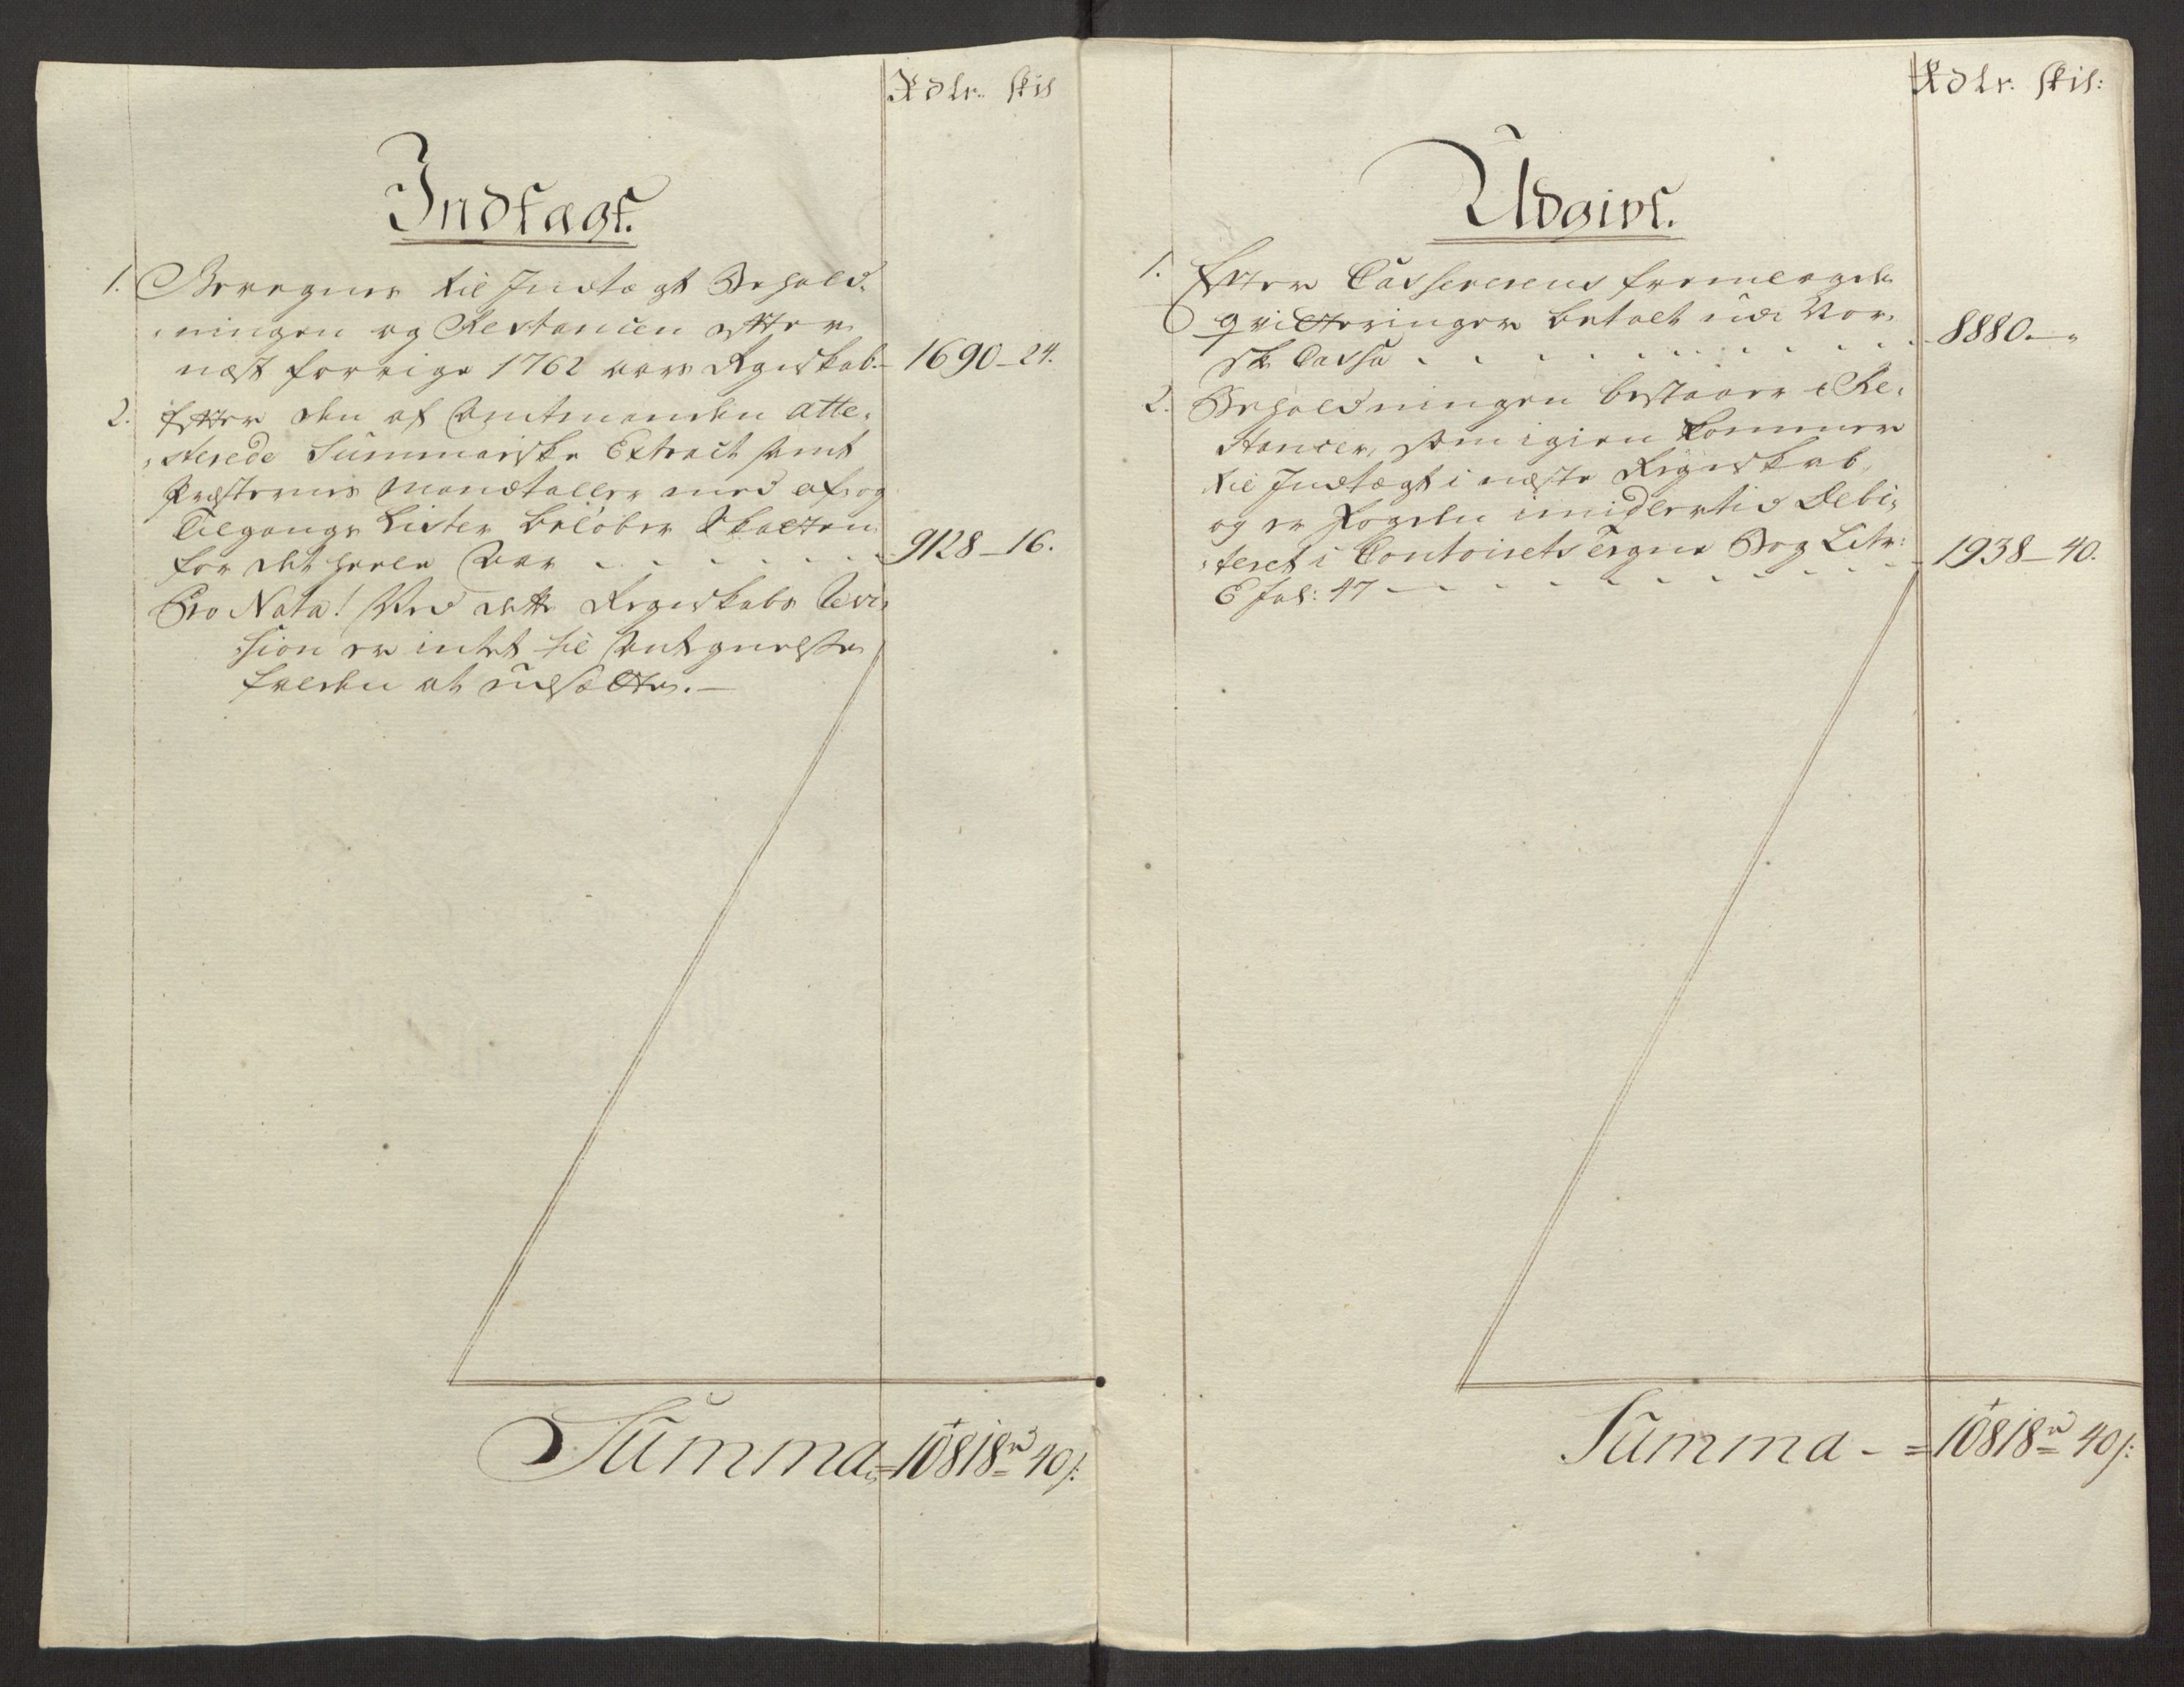 Rdlr. skil
Indtægt.
1. Beregnes til Indtægt Behold-
ningen og Restancen efter
næst forrige 1762 aars Regnskab. 1690-24.
2. Efter den af Amtmanden atte-
sterede Summariske Extract samt
Præsternes Mandtaller med af- og
Tilgangs Lister beløber Skatten
for det heele Aar 9128-16.
Pro Nota! Ved dette Regnskabs Revi-
sion er intet til Antegnelse
falden at udsætte.
Summa = 10818 rd 40 s:
Rdlr. skil:
Udgivt.
1. Efter Casserens fremlagde
qvitteringer betalt udi Nor-
ske Cassa 8880. -"
2. Beholdningen bestaaer i Re-
stancer, som igien kommer
til Indtægt i næste Regnskab,
og er Fogden imidlertid Debi-
teret i Contoirets Tegne Bog Litr:
E fol: 47 1938-40.
Summa - = 10818 rd 40 s: